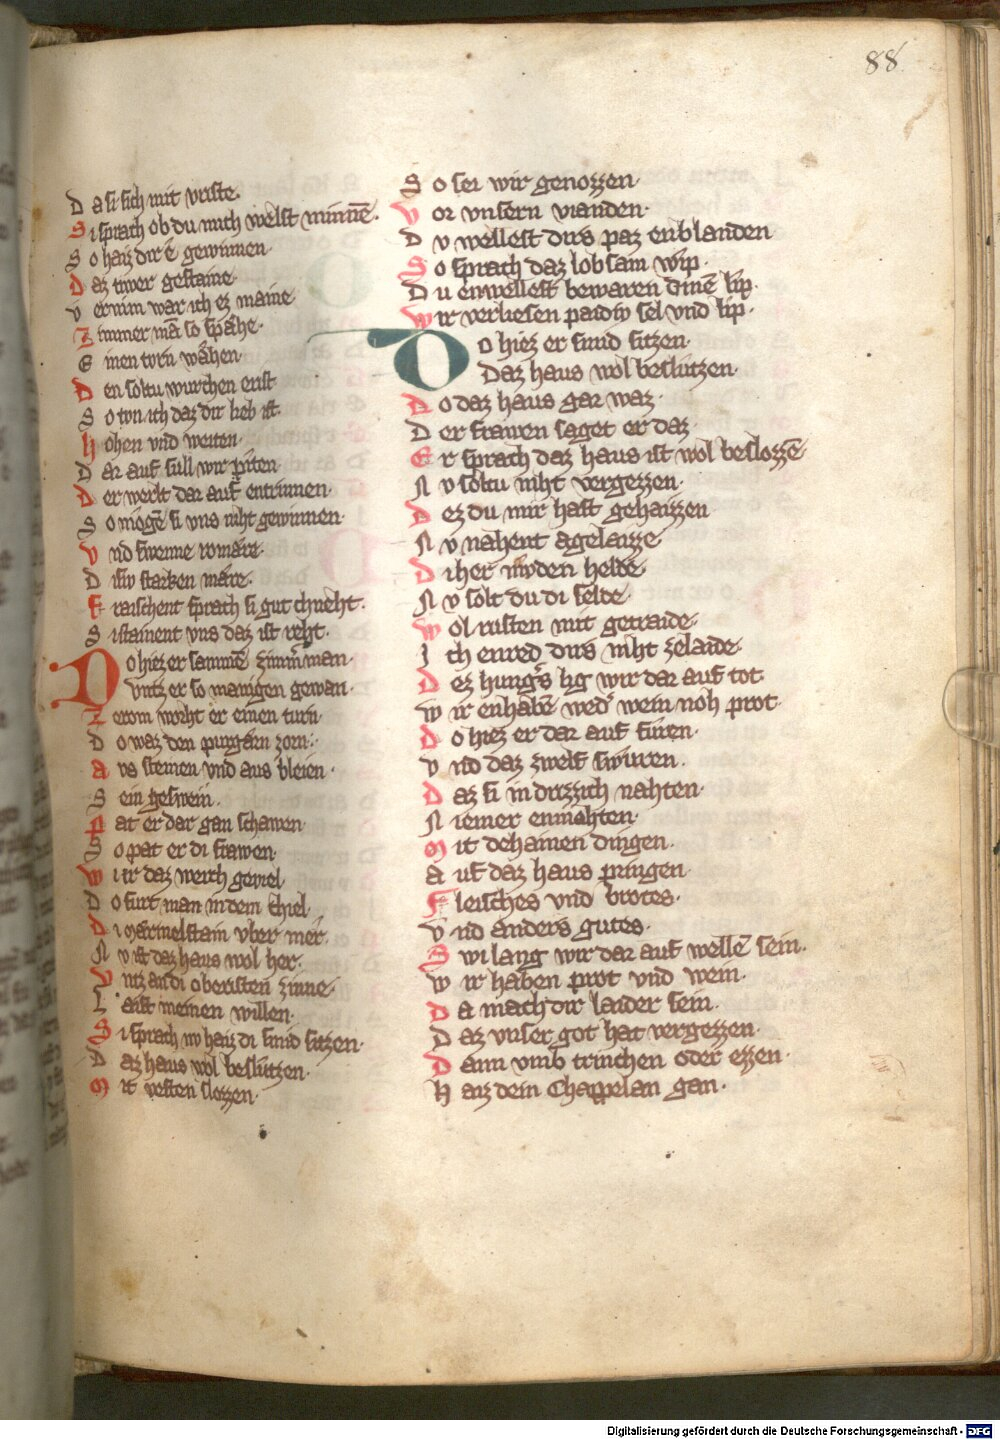 88
D a si sich mit vriste.
S i sprach ob du mich welst minnē.
S o haiz dir ê gewinnen.
D az tiwer gestaine.
V ernim war ich ez maine
Z immer mā so spahe.
E inen turn wahen.
D en soltu wurchen erist
S o tvn ich daz dir lieb ist.
H ohen vnd weiten.
D ar auf sull wir piten.
D er werlt dar auf entrinnen.
S o mogē si vns niht gewinnen.
V nd swenne romare.
D isiv starken mare.
F raischent sprach si gut chneht.
S i staiment vns daz ist reht.
D o hiez er samnē zimm̄man.
Vntz er so manigen gewan.
Z erom worht er einen turn.
D o waz den purgarn zorn.
A vs steinen vnd aus bleien.
S ein geswein.
P at er dar gan schawen.
S o pat er di frawen.
W i ir daz werch geviel
D o furt man in dem chiel.
D i marmelstain vber mer.
N v ist daz haus wol her.
V ntz an di oberisten zinne.
L aist meinen willen.
S i sprach nv haiz di smid sitzen.
D az haus wol beslützen.
M it vesten slozzen.
S o sei wir genozzen.
V or vnsern vianden.
D v wellest dirs paz enblanden
S o sprach daz lobsam wip.
D u enwellest bewaren dinē lip.
W ir verliesen paidiv sel vnd lip.
D o hiez er smid sitzen.
Daz haus wol beslützen.
D o daz haus gar waz.
D er frawen saget er daz.
E r sprach daz haus ist wol beslozzē.
N v soltu niht vergezzen.
D ez du mir hast gehaizzen
N v nahent agelaize
D i her nyden helde.
N v solt du di selde.
W ol rusten mit getraide.
I ch enred dirs niht zelaide.
D ez hung's lig wir dar auf tot.
W ir enhabē wed' wein noh prot.
D o hiez er dar auf furen.
V nd daz zwelf swuren.
D az si in dirzzich nahten.
N iemer enmohten.
M it dehainen dingen.
A uf daz haus pringen.
F leisches vnd brotes.
V nd anders gutes.
S wi lang wir dar auf wellē sein.
W ir haben prot vnd wein.
D a mach dir laider sein.
D az vnser got hat vergezzen.
D ann vmb trinchen oder ezzen.
H aiz dein Chappelan gan.
Digitalisierung gefördert durch die Deutsche Forschungsgemeinschaft - DFG